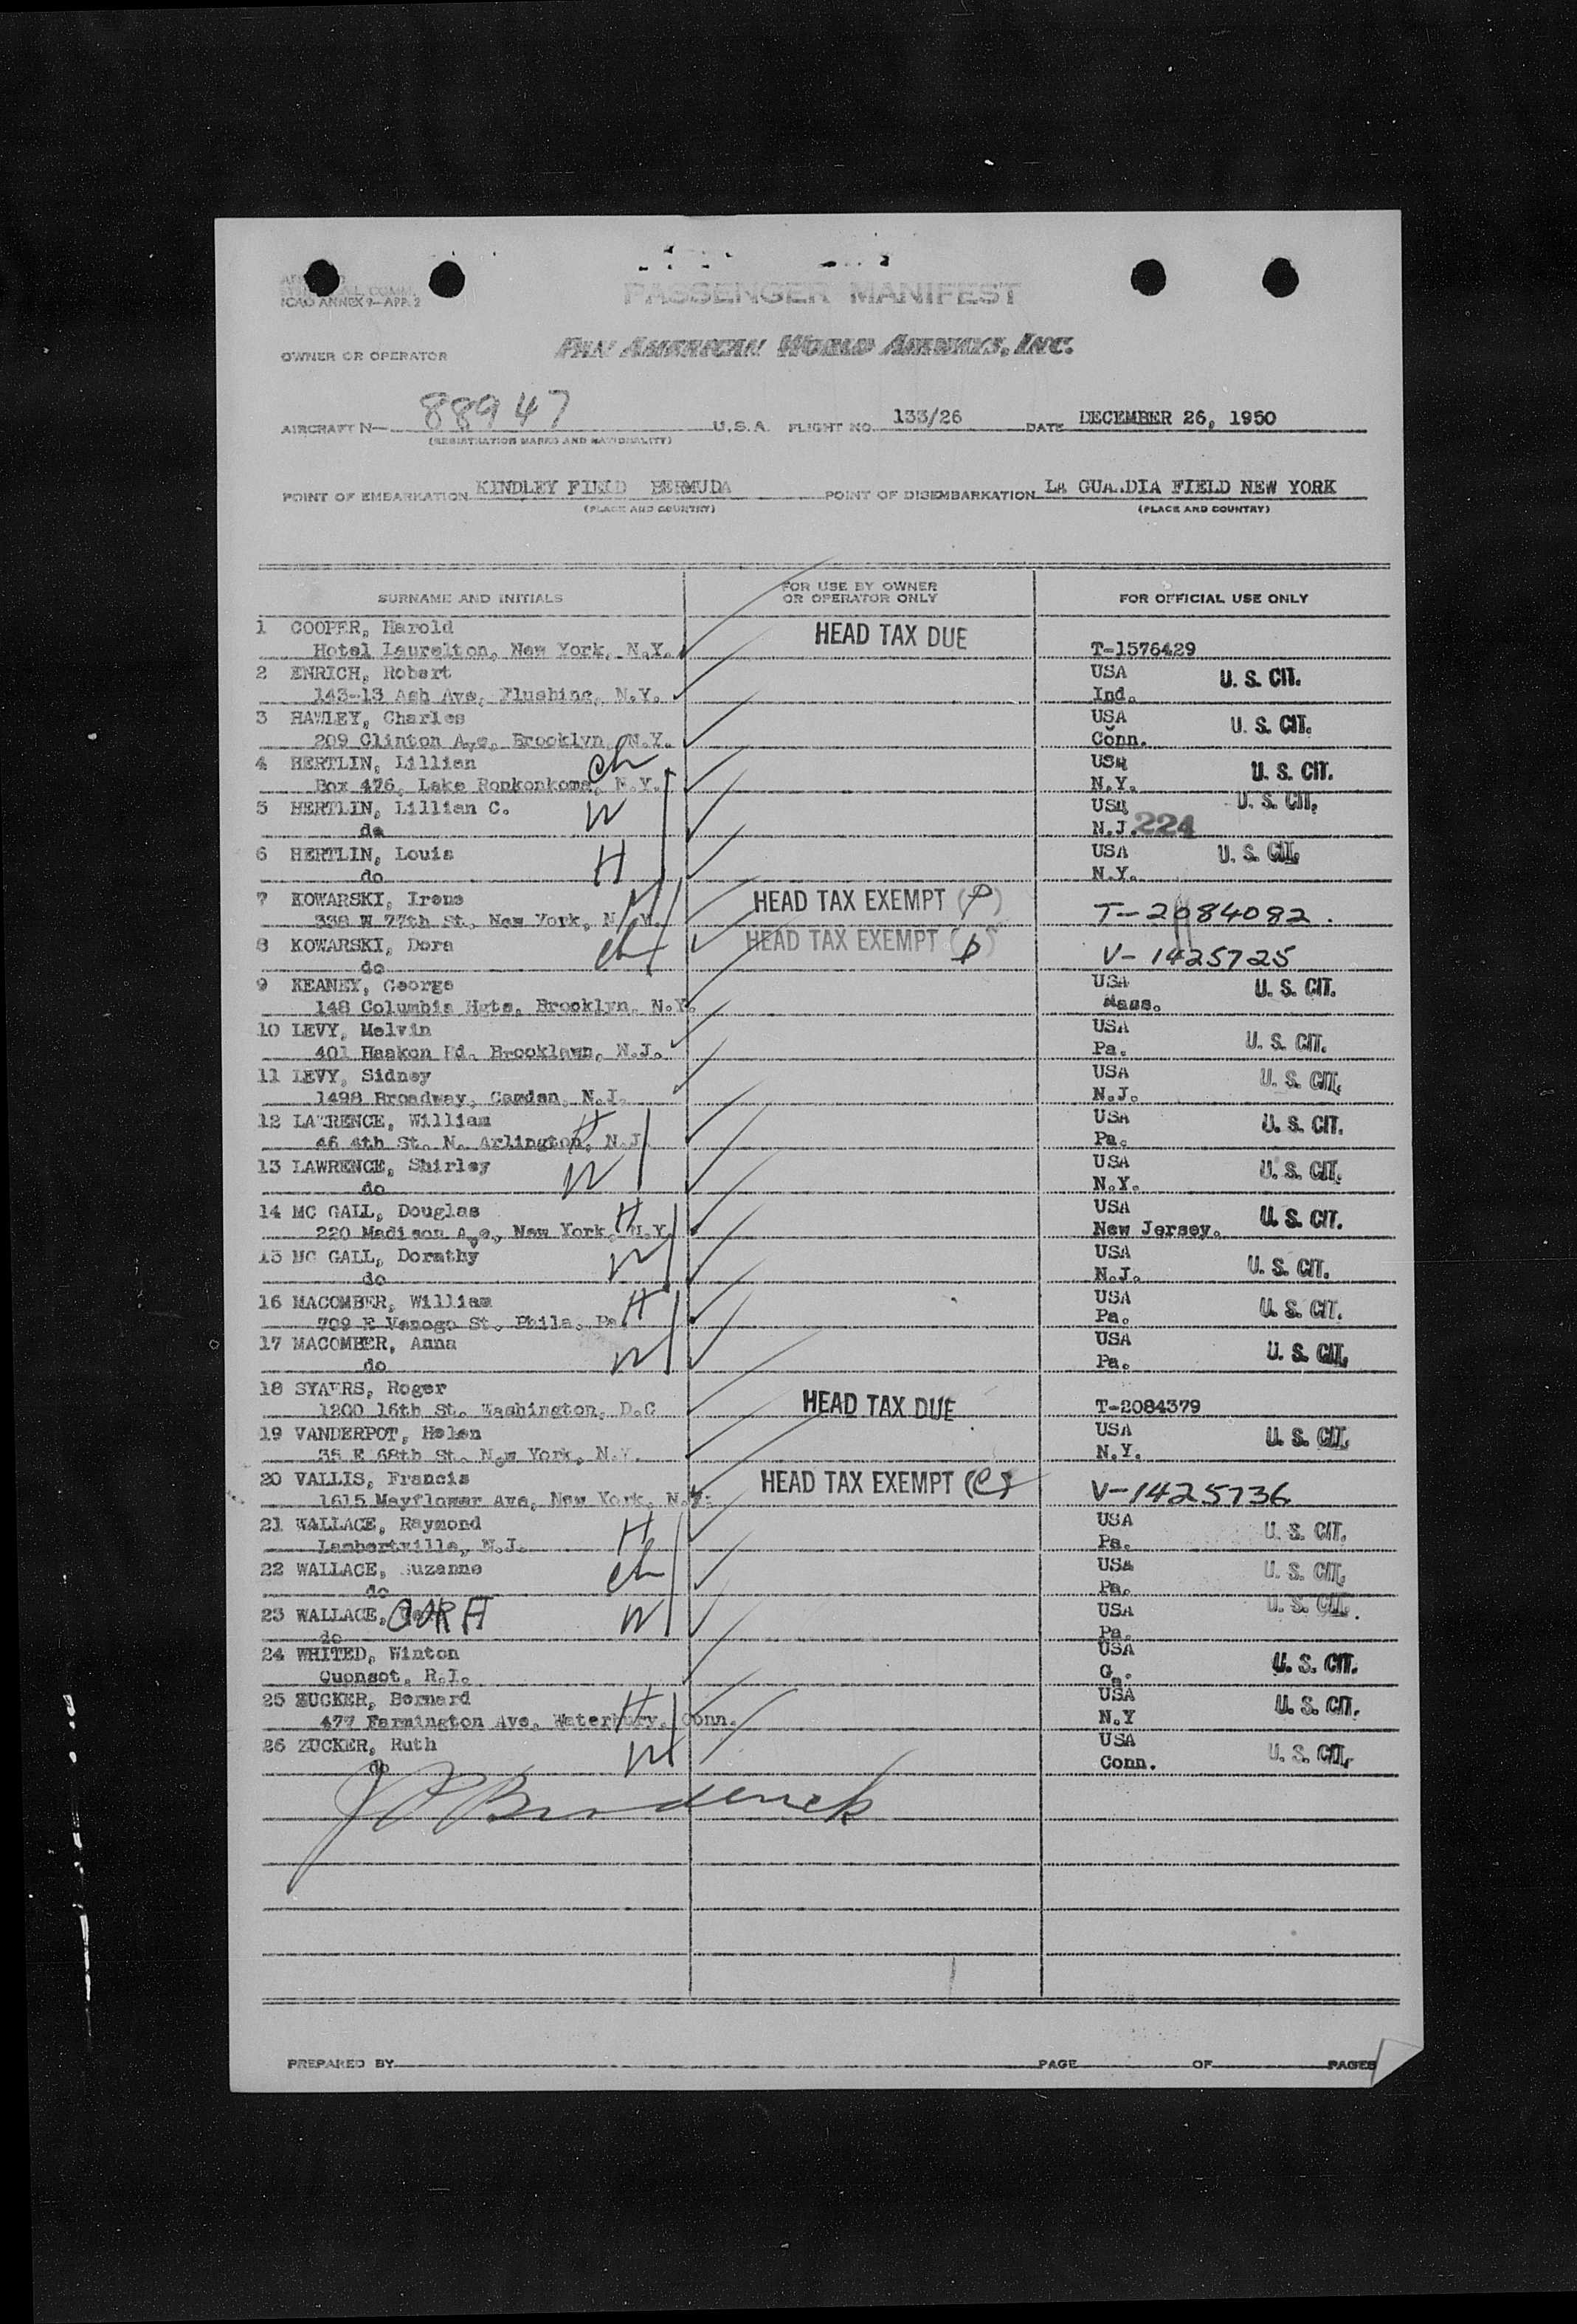 ICAO ANNEX 9—APP. 2
PASSENGER MANIFEST
OWNER OR OPERATOR PAN AMERICAN WORLD AIRWAYS, INC.
AIRCRAFT N— 88947 U.S.A. FLIGHT NO. 133/26 DATE DECEMBER 26, 1950
(REGISTRATION MARKS AND NATIONALITY)
POINT OF EMBARKATION KINDLEY FIELD BERMUDA POINT OF DISEMBARKATION LA GUA.DIA FIELD NEW YORK
(PLACE AND COUNTRY) (PLACE AND COUNTRY)
SURNAME AND INITIALS FOR USE BY OWNER OR OPERATOR ONLY FOR OFFICIAL USE ONLY
1 COOPER, Harold HEAD TAX DUE
Hotel Laurelton, New York, N.Y. T-1576429
2 ENRICH, Robert USA U. S. CIT.
143-13 Ash Ave, Flushing, N.Y. Ind.
3 HAWLEY, Charles USA U. S. CIT.
209 Clinton Ave, Brooklyn, N.Y. Conn.
4 HERTLIN, Lillian ch USA U. S. CIT.
Box 476, Lake Ronkonkoma, N.Y. N.Y.
5 HERTLIN, Lillian C. W USA U. S. CIT.
do N.J. 224
6 HERTLIN, Louis H USA U. S. CIT.
do N.Y.
7 KOWARSKI, Irene W HEAD TAX EXEMPT (P)
338 W 77th St, New York, N.Y. T-2084082.
8 KOWARSKI, Dora ch HEAD TAX EXEMPT (P)
do V-1425725
9 KEANEY, George USA U. S. CIT.
148 Columbia Hgts, Brooklyn, N.Y. Mass.
10 LEVY, Melvin USA U. S. CIT.
401 Haakon Rd. Brooklawn, N.J. Pa.
11 LEVY, Sidney USA U. S. CIT.
1498 Broadway, Camden, N.J. N.J.
12 LAWRENCE, William H USA U. S. CIT.
46 4th St. N. Arlington, N.J Pa.
13 LAWRENCE, Shirley W USA U. S. CIT.
do N.Y.
14 MC GALL, Douglas H USA U. S. CIT.
220 Madison Ave, New York, N.Y. New Jersey.
15 MC GALL, Dorathy W USA U. S. CIT.
do N.J.
16 MACOMBER, William H USA U. S. CIT.
709 E Venogo St. Phila, Pa. Pa.
17 MACOMBER, Anna W USA U. S. CIT.
do Pa.
18 SYAERS, Roger HEAD TAX DUE
1200 16th St. Washington, D.C T-2084379
19 VANDERPOT, Helen USA U. S. CIT.
35 E 68th St. New York, N.Y. N.Y.
20 VALLIS, Francis HEAD TAX EXEMPT (C)
1615 Mayflower Ave, New York, N.Y. V-1425736
21 WALLACE, Raymond H USA U. S. CIT.
Lambertville, N.J. Pa.
22 WALLACE, Suzanne ch USA U. S. CIT.
do Pa.
23 WALLACE, W USA U. S. CIT.
do Pa.
24 WHITED, Winton USA U. S. CIT.
Quonset, R.I. Ga.
25 ZUCKER, Bernard H USA U. S. CIT.
477 Farmington Ave, Waterbury, Conn. N.Y
26 ZUCKER, Ruth W USA U. S. CIT.
do Conn.
Broderick
PREPARED BY PAGE OF PAGES